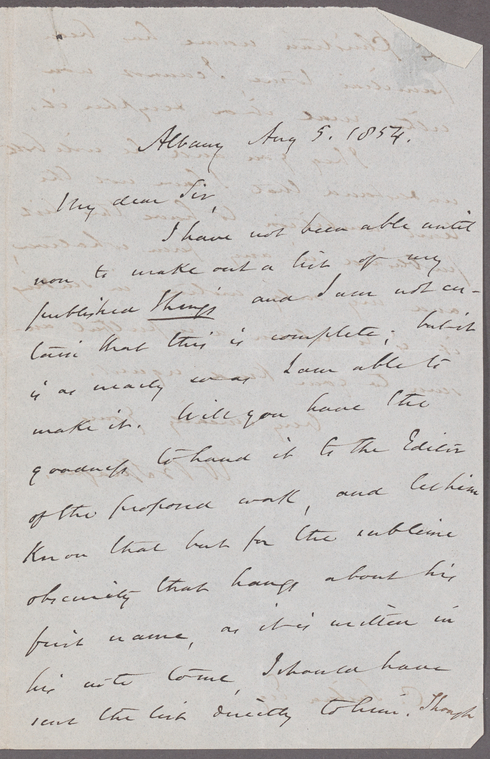 Albany Aug 5. 1854.
My dear Sir,
I have not been able until
now to make out a list of my
published things and I am not cer-
tain that this is complete; but it
is as nearly so as I am able to
make it. Will you have the
goodness to hand it to the Editor
of the proposed work, and let him
know that but for the sublime
obscurity that hangs about his
first name, as it is written in
his note to me, I should have
sent the list directly to him. Though